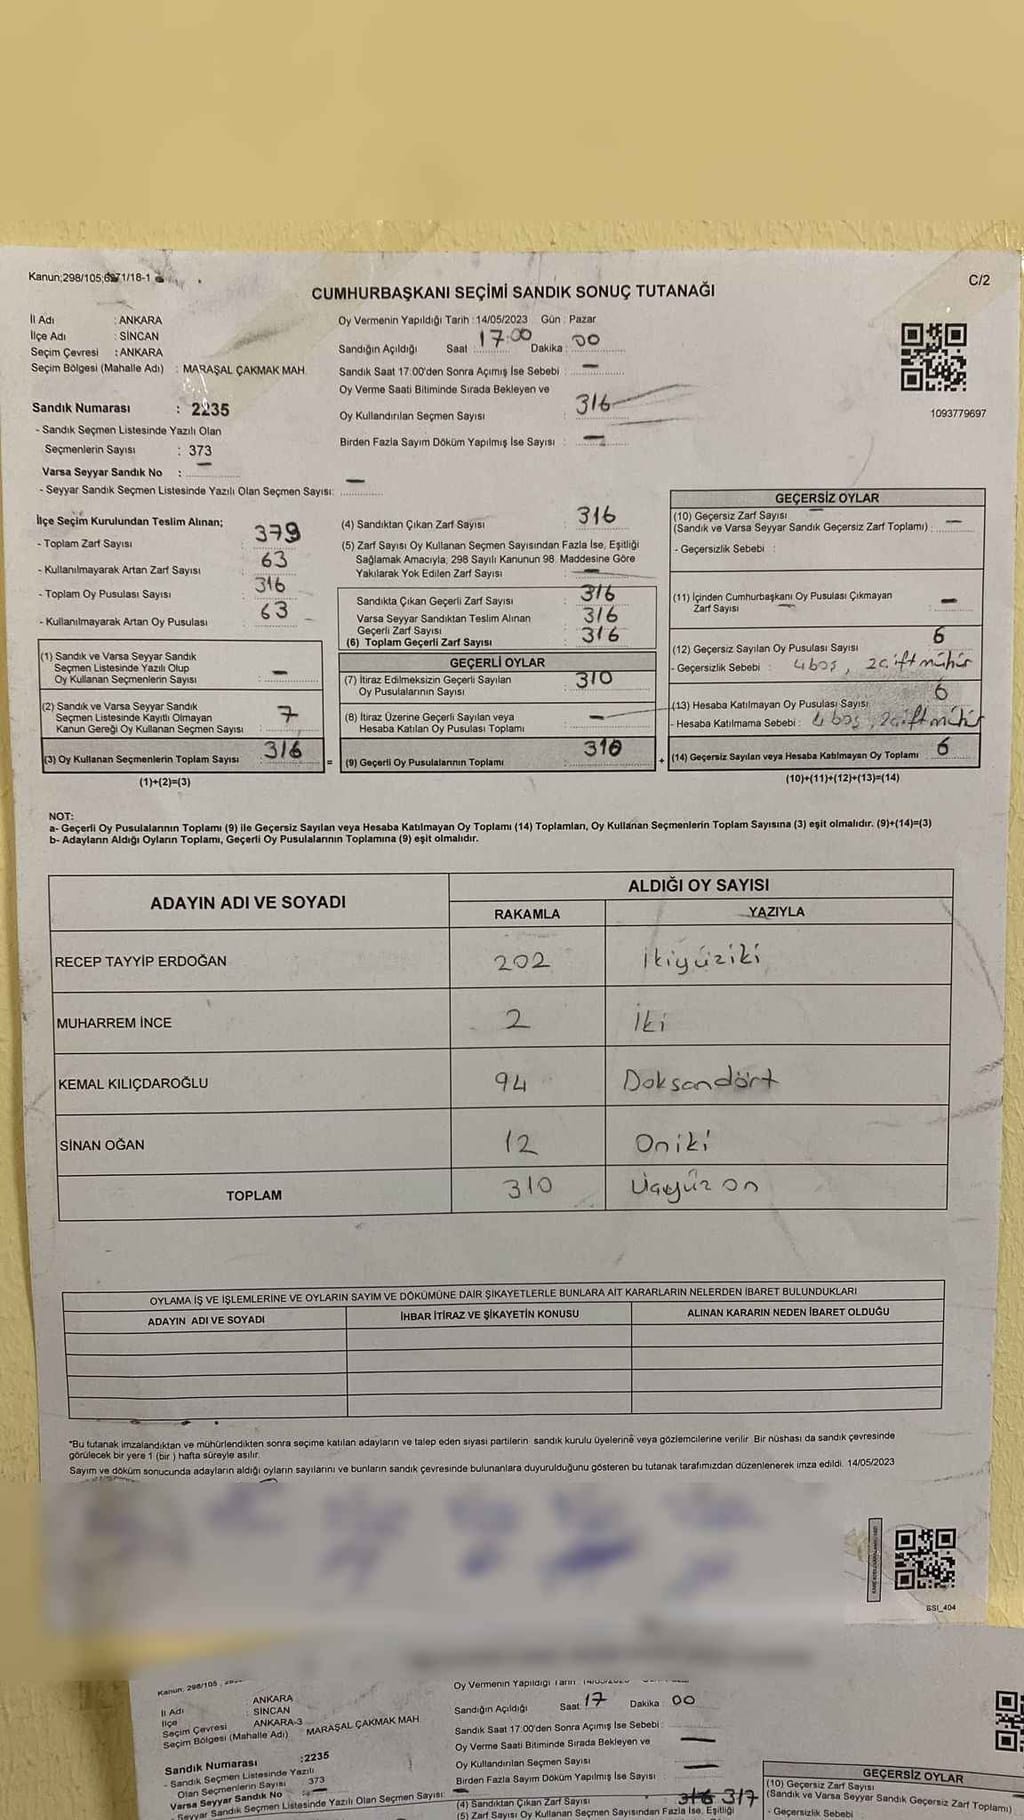 Kanun;298/105;6271/18-1
C/2
CUMHURBAŞKANI SEÇİMİ SANDIK SONUÇ TUTANAĞI
İl Adı : ANKARA
İlçe Adı : SİNCAN
Seçim Çevresi : ANKARA
Seçim Bölgesi (Mahalle Adı) : MARAŞAL ÇAKMAK MAH.
Sandık Numarası : 2235
- Sandık Seçmen Listesinde Yazılı Olan
Seçmenlerin Sayısı : 373
Varsa Seyyar Sandık No : —
- Seyyar Sandık Seçmen Listesinde Yazılı Olan Seçmen Sayısı: —
Oy Vermenin Yapıldığı Tarih : 14/05/2023 Gün : Pazar
Sandığın Açıldığı Saat 17:00 Dakika : 00
Sandık Saat 17.00'den Sonra Açımış İse Sebebi : —
Oy Verme Saati Bitiminde Sırada Bekleyen ve
Oy Kullandırılan Seçmen Sayısı : 316
Birden Fazla Sayım Döküm Yapılmış İse Sayısı : —
1093779697
İlçe Seçim Kurulundan Teslim Alınan;
- Toplam Zarf Sayısı : 379
- Kullanılmayarak Artan Zarf Sayısı : 63
- Toplam Oy Pusulası Sayısı : 316
- Kullanılmayarak Artan Oy Pusulası : 63
(1) Sandık ve Varsa Seyyar Sandık
Seçmen Listesinde Yazılı Olup
Oy Kullanan Seçmenlerin Sayısı : —
(2) Sandık ve Varsa Seyyar Sandık
Seçmen Listesinde Kayıtlı Olmayan
Kanun Gereği Oy Kullanan Seçmen Sayısı : 7
(3) Oy Kullanan Seçmenlerin Toplam Sayısı : 316
(1)+(2)=(3)
=
(4) Sandıktan Çıkan Zarf Sayısı : 316
(5) Zarf Sayısı Oy Kullanan Seçmen Sayısından Fazla İse, Eşitliği
Sağlamak Amacıyla, 298 Sayılı Kanunun 98. Maddesine Göre
Yakılarak Yok Edilen Zarf Sayısı : —
Sandıkta Çıkan Geçerli Zarf Sayısı : 316
Varsa Seyyar Sandıktan Teslim Alınan
Geçerli Zarf Sayısı : 316
(6) Toplam Geçerli Zarf Sayısı : 316
GEÇERLİ OYLAR
(7) İtiraz Edilmeksizin Geçerli Sayılan
Oy Pusulalarının Sayısı : 310
(8) İtiraz Üzerine Geçerli Sayılan veya
Hesaba Katılan Oy Pusulası Toplamı : —
(9) Geçerli Oy Pusulalarının Toplamı : 310
+
GEÇERSİZ OYLAR
(10) Geçersiz Zarf Sayısı
(Sandık ve Varsa Seyyar Sandık Geçersiz Zarf Toplamı) : —
- Geçersizlik Sebebi :
(11) İçinden Cumhurbaşkanı Oy Pusulası Çıkmayan
Zarf Sayısı —
(12) Geçersiz Sayılan Oy Pusulası Sayısı 6
- Geçersizlik Sebebi : 4 boş, 2 çift mühür
(13) Hesaba Katılmayan Oy Pusulası Sayısı 6
- Hesaba Katılmama Sebebi : 4 boş, 2 çift mühür
(14) Geçersiz Sayılan veya Hesaba Katılmayan Oy Toplamı 6
(10)+(11)+(12)+(13)=(14)
NOT:
a- Geçerli Oy Pusulalarının Toplamı (9) ile Geçersiz Sayılan veya Hesaba Katılmayan Oy Toplamı (14) Toplamları, Oy Kullanan Seçmenlerin Toplam Sayısına (3) eşit olmalıdır. (9)+(14)=(3)
b- Adayların Aldığı Oyların Toplamı, Geçerli Oy Pusulalarının Toplamına (9) eşit olmalıdır.
ADAYIN ADI VE SOYADI ALDIĞI OY SAYISI
RAKAMLA YAZIYLA
RECEP TAYYİP ERDOĞAN 202 İkiyüziki
MUHARREM İNCE 2 İki
KEMAL KILIÇDAROĞLU 94 Doksandört
SİNAN OĞAN 12 Oniki
TOPLAM 310 Üçyüz on
OYLAMA İŞ VE İŞLEMLERİNE VE OYLARIN SAYIM VE DÖKÜMÜNE DAİR ŞİKAYETLERLE BUNLARA AİT KARARLARIN NELERDEN İBARET BULUNDUKLARI
ADAYIN ADI VE SOYADI İHBAR İTİRAZ VE ŞİKAYETİN KONUSU ALINAN KARARIN NEDEN İBARET OLDUĞU
*Bu tutanak imzalandıktan ve mühürlendikten sonra seçime katılan adayların ve talep eden siyasi partilerin sandık kurulu üyelerine veya gözlemcilerine verilir. Bir nüshası da sandık çevresinde
görülecek bir yere 1 (bir ) hafta süreyle asılır.
Sayım ve döküm sonucunda adayların aldığı oyların sayılarını ve bunların sandık çevresinde bulunanlara duyurulduğunu gösteren bu tutanak tarafımızdan düzenlenerek imza edildi. 14/05/2023
SSI_404
Kanun; 298/105
İl Adı ANKARA
İlçe SİNCAN
Seçim Çevresi ANKARA-3
Seçim Bölgesi (Mahalle Adı) MARAŞAL ÇAKMAK MAH.
Sandık Numarası :2235
- Sandık Seçmen Listesinde Yazılı
Olan Seçmenlerin Sayısı : 373
Varsa Seyyar Sandık No : —
- Seyyar Sandık Seçmen Listesinde Yazılı Olan Seçmen Sayısı: —
Oy Vermenin Yapıldığı Tarih
Sandığın Açıldığı Saat 17 Dakika 00
Sandık Saat 17.00'den Sonra Açımış İse Sebebi :
Oy Verme Saati Bitiminde Sırada Bekleyen ve —
Oy Kullandırılan Seçmen Sayısı
Birden Fazla Sayım Döküm Yapılmış İse Sayısı : —
(4) Sandıktan Çıkan Zarf Sayısı : 316 317
(5) Zarf Sayısı Oy Kullanan Seçmen Sayısından Fazla İse, Eşitliği
GEÇERSİZ OYLAR
(10) Geçersiz Zarf Sayısı
(Sandık ve Varsa Seyyar Sandık Geçersiz Zarf Toplamı)
- Geçersizlik Sebebi